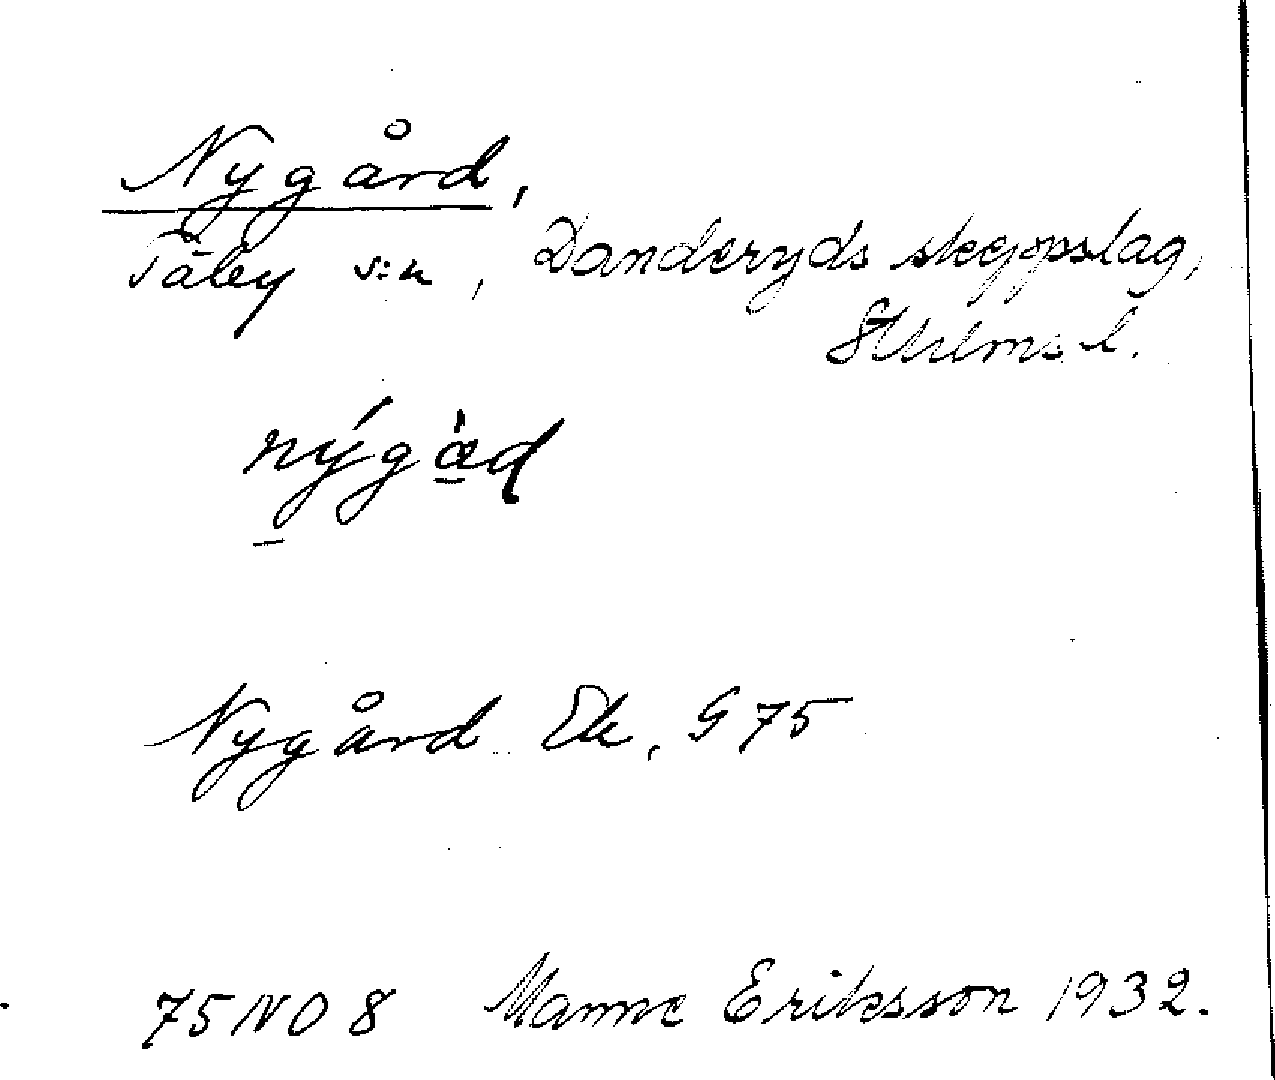 Nygård,
Täby s:n, Danderyds skeppslag,
Sthlms l.
nýgàd
Nygård Ek, G 75
75 NO 8 Manne Eriksson 1932.